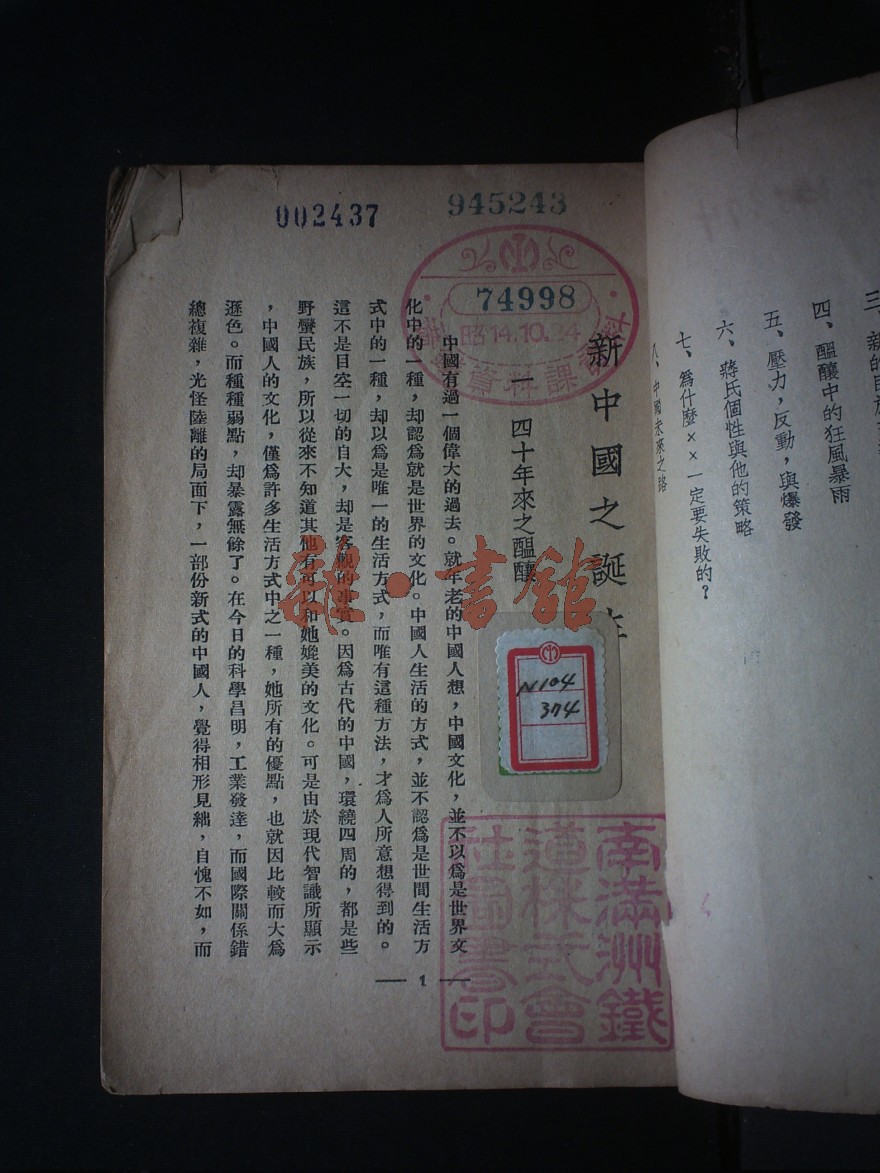 三、新的民族
四、醞釀中的狂風暴雨
五、壓力，反動，與爆發
六、蔣氏個性與他的策略
七、爲什麼××一定要失敗的？
八、中國未來之路
002437
945243
74998
昭14.10.24
資料課
新中國之誕生
一 四十年來之醞釀
中國有過一個偉大的過去。就年老的中國人想，中國文化，並不以爲是世界文
化中的一種，却認爲就是世界的文化。中國人生活的方式，並不認爲是世間生活方
式中的一種，却以爲是唯一的生活方式，而唯有這種方法，才爲人所意想得到的。
這不是目空一切的自大，却是客觀的事實。因爲古代的中國，環繞四周的，都是些
野蠻民族，所以從來不知道其他有可以和她媲美的文化。可是由於現代智識所顯示
，中國人的文化，僅爲許多生活方式中之一種，她所有的優點，也就因比較而大爲
遜色。而種種弱點，却暴露無餘了。在今日的科學昌明，工業發達，而國際關係錯
總複雜，光怪陸離的局面下，一部份新式的中國人，覺得相形見絀，自愧不如，而
N104
374
雜·書館
南滿洲鐵
道株式會
社圖書印
— 1 —